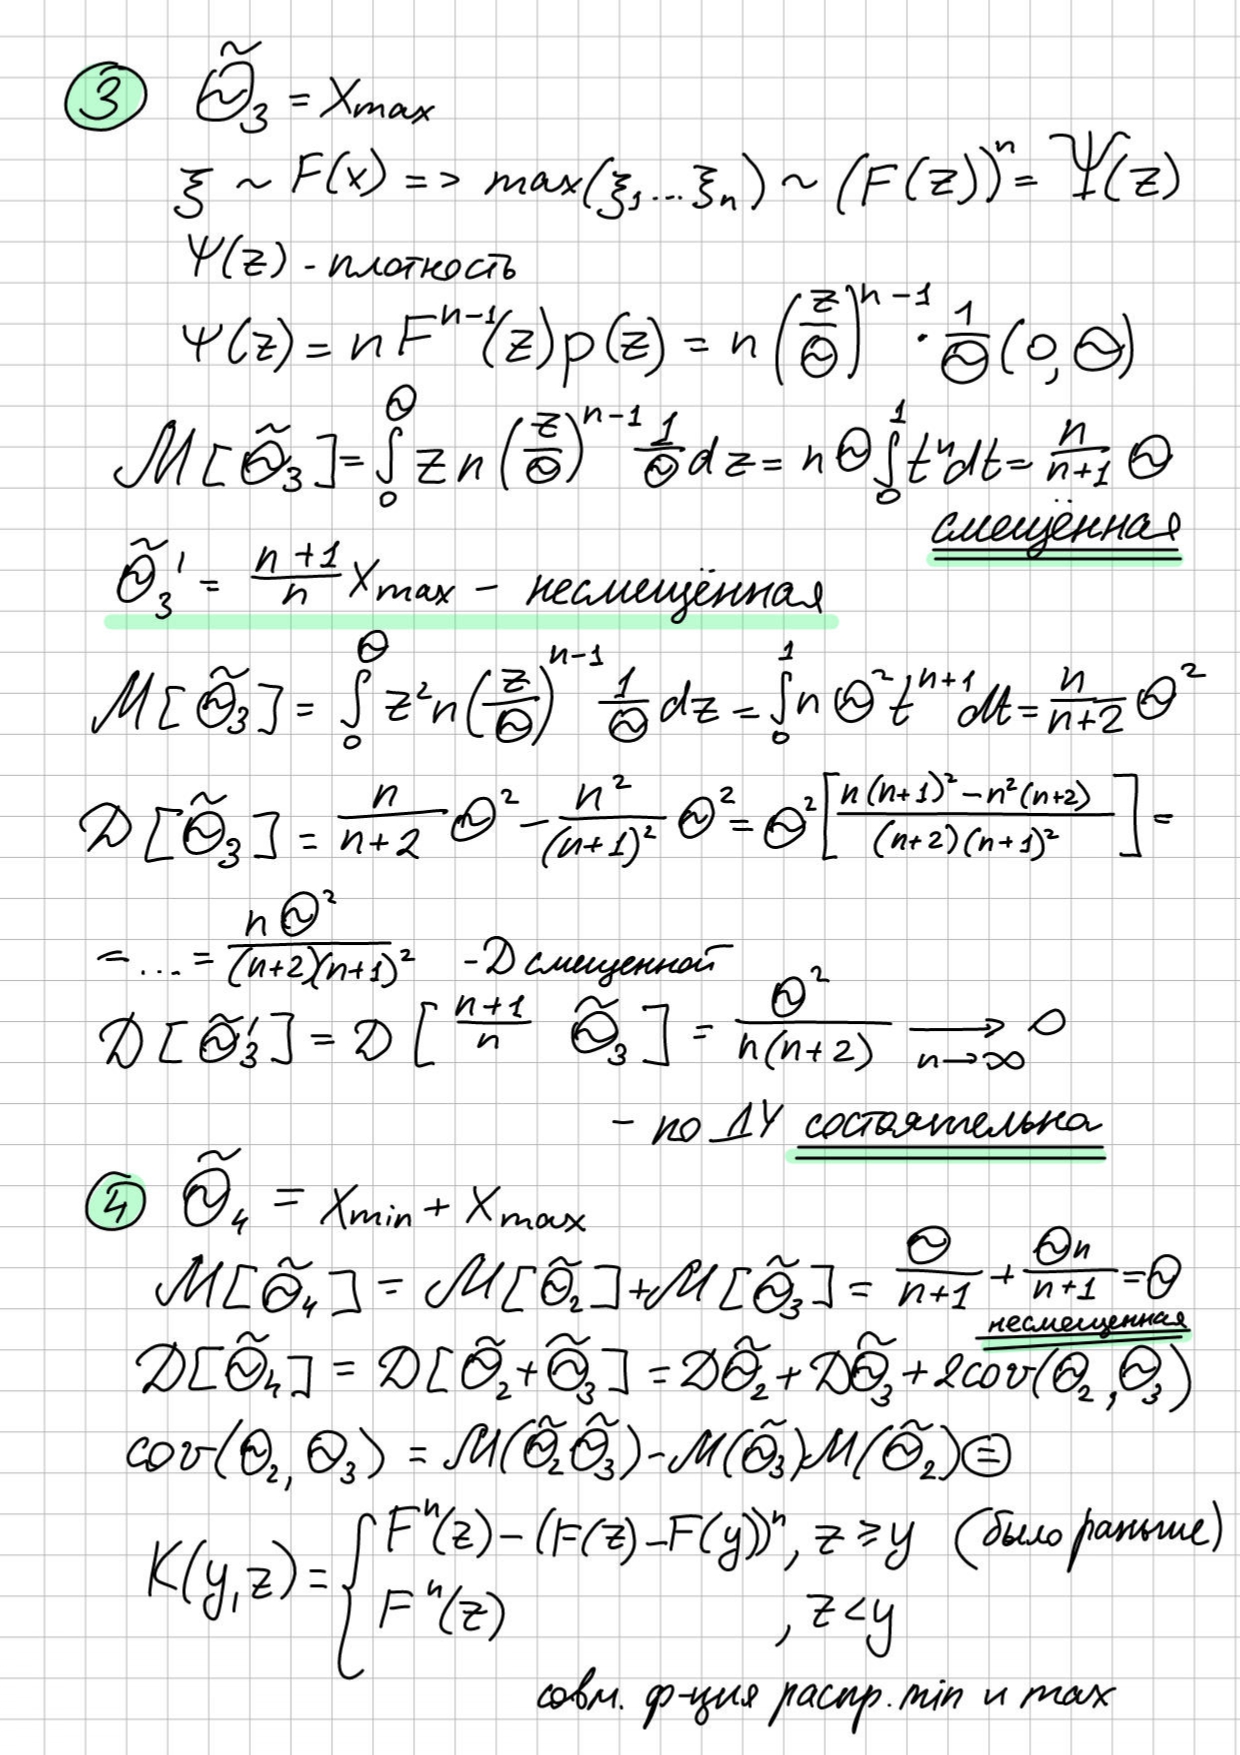 ③ Θ̃₃ = Xmax
ξ ~ F(x) => max(ξ₁...ξₙ) ~ (F(z))ⁿ = Ψ(z)
ψ(z) - плотность
ψ(z) = n Fⁿ⁻¹(z) p(z) = n (z/Θ)ⁿ⁻¹ · 1/Θ (0, Θ)
M[Θ̃₃] = ∫₀^Θ z n (z/Θ)ⁿ⁻¹ 1/Θ dz = n Θ ∫₀¹ tⁿ dt = n/(n+1) Θ
смещённая
Θ̃₃' = (n+1)/n Xmax - несмещённая
M[Θ̃₃] = ∫₀^Θ z² n (z/Θ)ⁿ⁻¹ 1/Θ dz = ∫₀¹ n Θ² tⁿ⁺¹ dt = n/(n+2) Θ²
D[Θ̃₃] = n/(n+2) Θ² - n²/(n+1)² Θ² = Θ² [(n(n+1)² - n²(n+2))/((n+2)(n+1)²)] =
= ... = nΘ²/((n+2)(n+1)²) - D смещенной
D[Θ̃₃'] = D[(n+1)/n Θ̃₃] = Θ²/(n(n+2)) ⟶ 0 n→∞
- по ДУ состоятельна
④ Θ̃₄ = Xmin + Xmax
M[Θ̃₄] = M[Θ̃₂] + M[Θ̃₃] = Θ/(n+1) + Θn/(n+1) = Θ
несмещенная
D[Θ̃₄] = D[Θ̃₂ + Θ̃₃] = DΘ̃₂ + DΘ̃₃ + 2cov(Θ₂, Θ₃)
cov(Θ₂, Θ₃) = M(Θ̃₂Θ̃₃) - M(Θ̃₃)M(Θ̃₂) ⊜
K(y, z) = { Fⁿ(z) - (F(z) - F(y))ⁿ, z ≥ y (было раньше)
Fⁿ(z) , z < y
совм. ф-ция распр. min и max